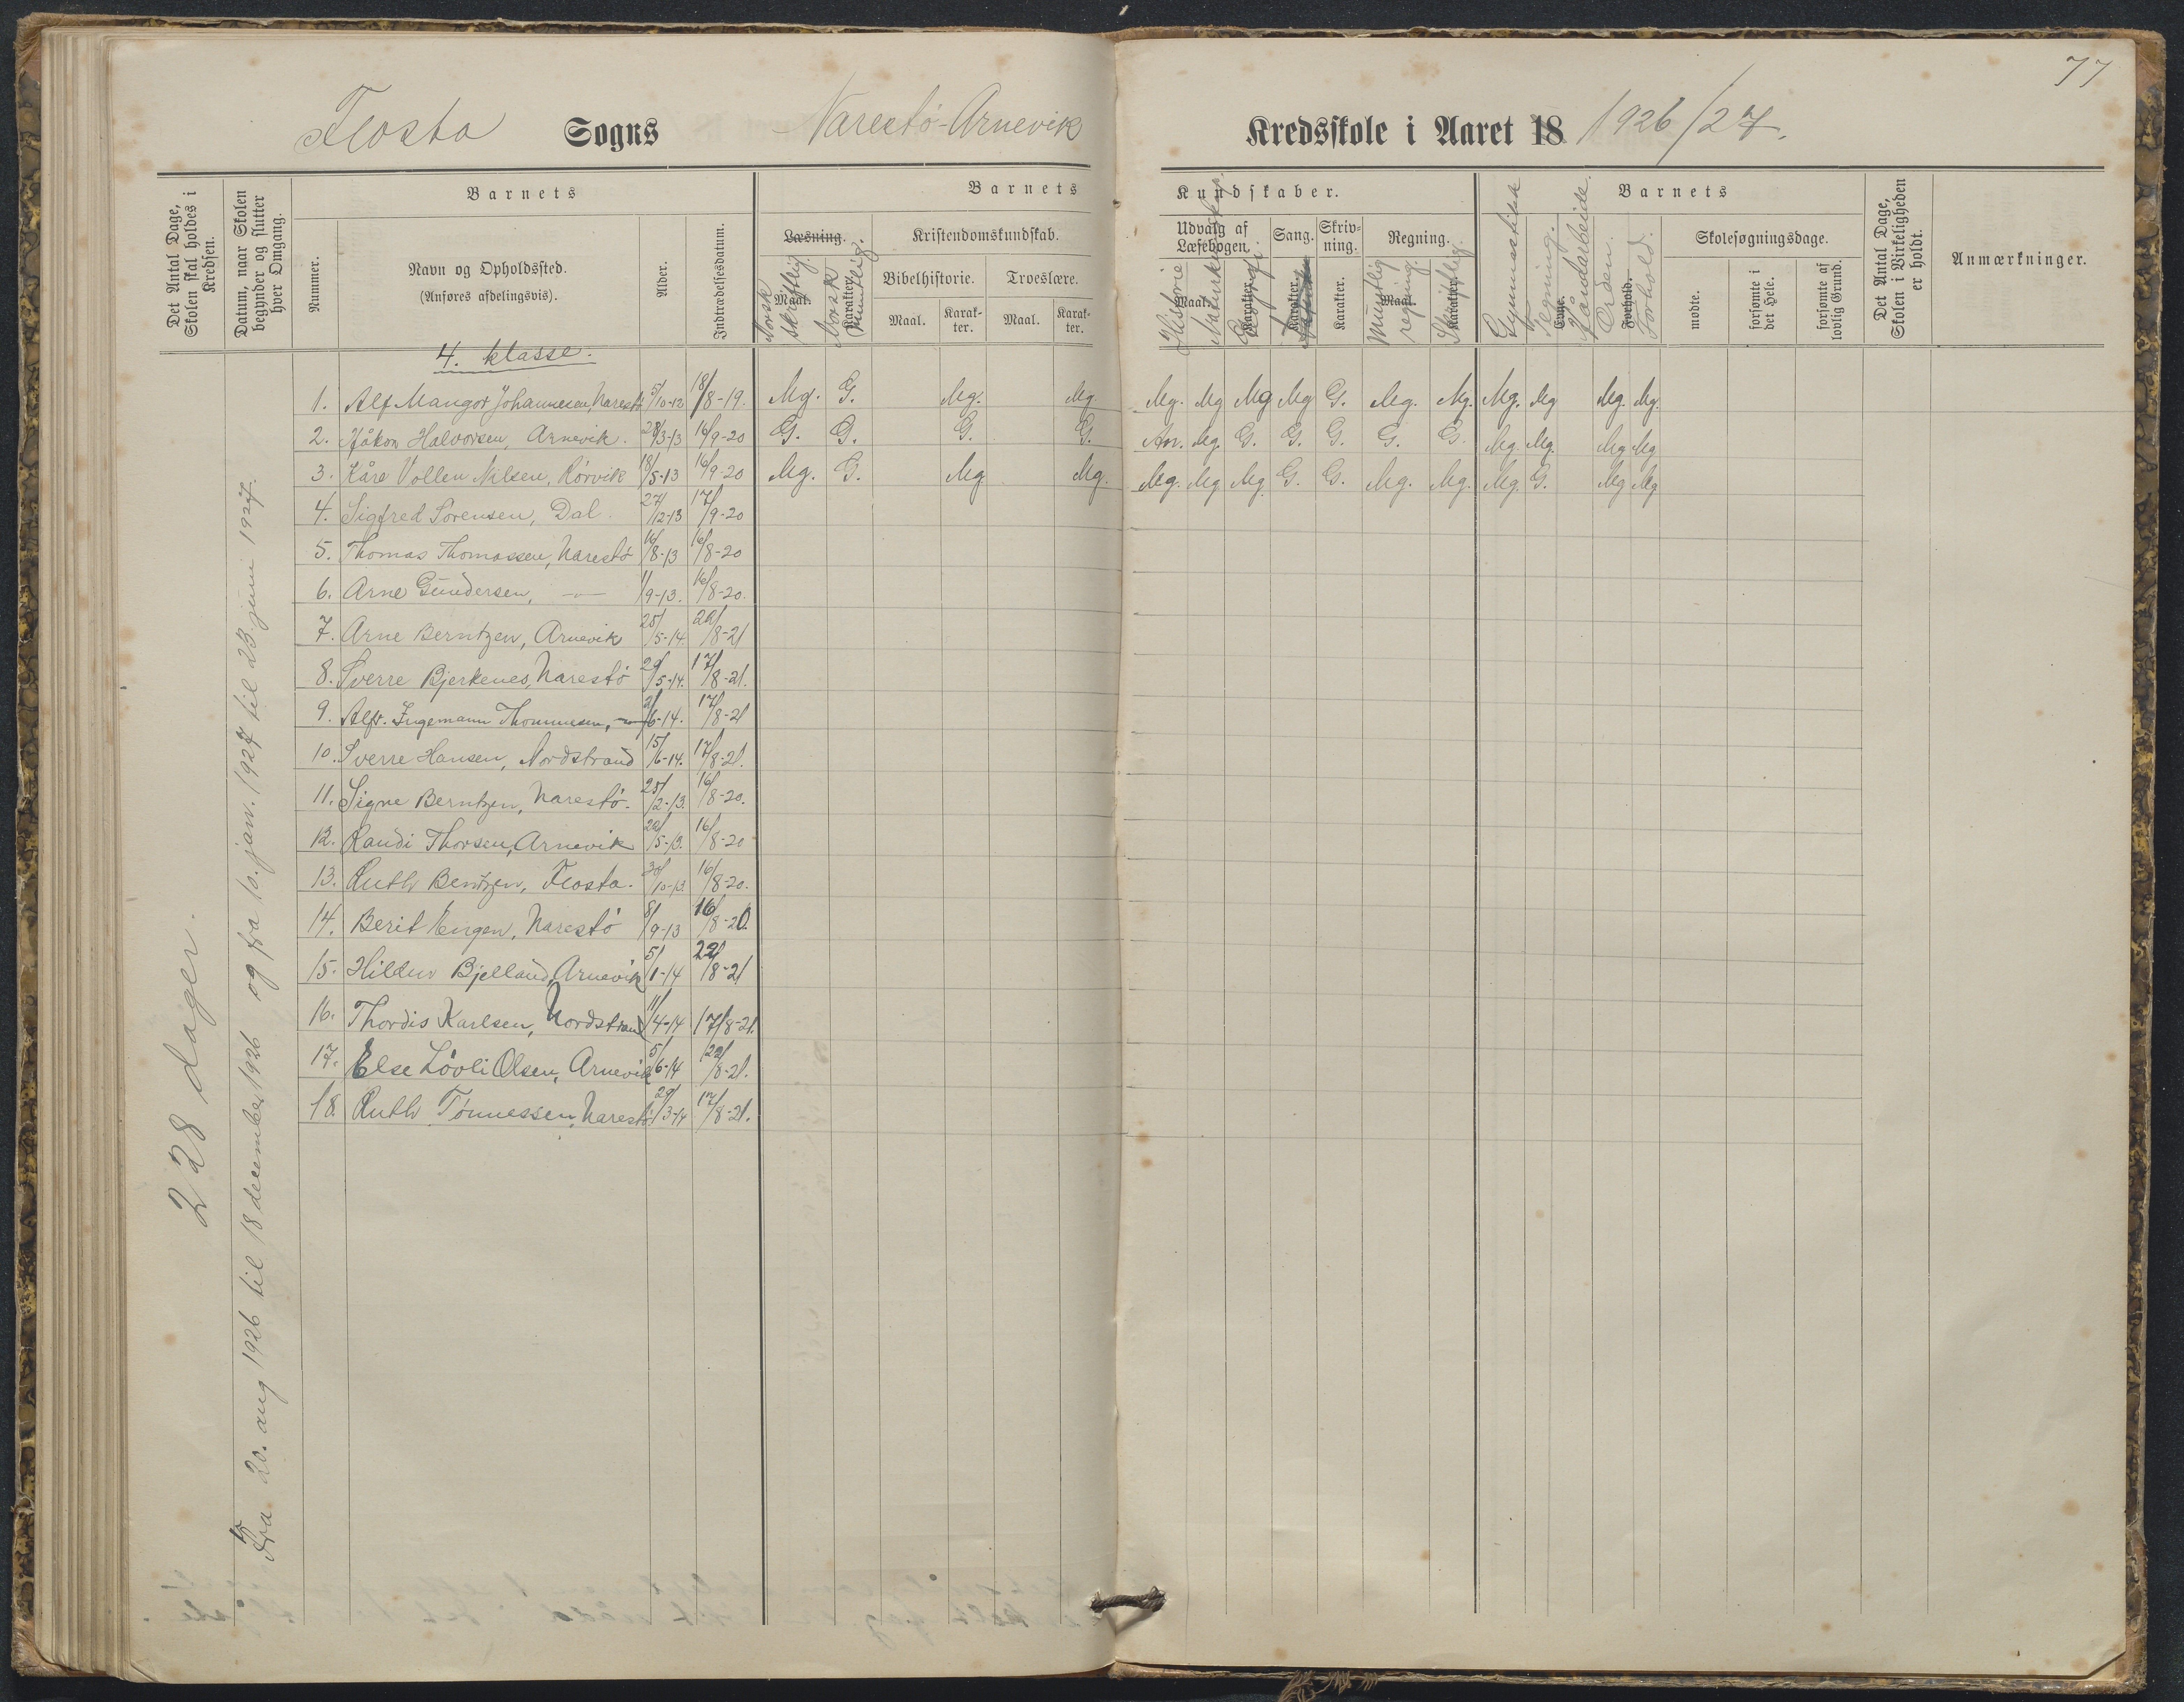 77
Flosta Sogns Narestø-Arnevik Kredsskole i Aaret 18 1926/27.
Det Antal Dage, Skolen skal holdes i Kredsen.
Datum, naar Skolen begynder og slutter hver Omgang.
Barnets
Nummer.
Navn og Opholdssted.
(Anføres afdelingsvis).
Alder.
Indtrædelsesdatum.
Barnets Kundskaber.
Læsning.
Maal.
Karakter.
Norsk skriftlig.
Norsk muntlig.
Kristendomskundskab.
Bibelhistorie.
Maal.
Karakter.
Troeslære.
Maal.
Karakter.
Udvalg af Læsebogen.
Maal.
Karakter.
Historie
Naturkundskap.
Geografi.
Sang.
Karakter.
Skrivning.
Karakter.
Regning.
Maal.
Karakter.
Muntlig regning.
Skriftlig.
Barnets
Evne.
Forhold.
Gymnastikk
Tegning.
Håndarbeide.
Orden.
Forhold.
Skolesøgningsdage.
mødte.
forsømte i det Hele.
forsømte af lovlig Grund.
Det Antal Dage, Skolen i Virkeligheden er holdt.
Anmærkninger.
228 dager.
Fra 20. aug 1926 til 18 december 1926 og fra 10. jan. 1927 til 23 juni 1927.
4. klasse.
1. Alf Mangor Johannesen, Narestø 5/10-12 18/8-19. Mg. G. Mg. Mg. Mg. Mg Mg Mg G. Mg. Mg. Mg. Mg Mg. Mg.
2. Håkon Halvorsen, Arnevik. 28/3-13 16/9-20 G. G. G. G. Mg. G. G. G. G. G. Mg. Mg. Mg Mg
3. Kåre Vollen Nilsen, Rørvik 18/5-13 16/9-20 Mg. G. Mg Mg. Mg. Mg Mg G. G. Mg. Mg. Mg. G. Mg Mg
4. Sigfred Sørensen, Dal. 27/12-13 17/9-20
5. Thomas Thomassen, Narestø 16/8-13 16/8-20
6. Arne Gundersen, — 1/9-13. 16/8-20.
7. Arne Berntzen, Arnevik 25/5-14 22/8-21
8. Sverre Bjerkenes, Narestø 29/5-14. 17/8-21.
9. Alfr. Ingemann Thommesen, — 2/6-14. 17/8-21
10. Sverre Hansen, Nordstrand 15/6-14. 17/8-21.
11. Signe Berntzen, Narestø. 25/2-13. 16/8-20.
12. Randi Thorsen, Arnevik 22/5-13. 16/8-20
13. Ruth Bentzen, Flosta. 30/10-13. 16/8-20.
14. Berit Engen, Narestø 8/9-13 16/8-20.
15. Hildur Bjelland, Arnevik 5/1-14 22/8-21
16. Thordis Karlsen, Nordstrand 11/4-14 17/8-21.
17. Else Løvli Olsen, Arnevik 5/6-14 22/8-21.
18. Ruth Tønnessen, Narestø. 29/3-14 17/8-21.